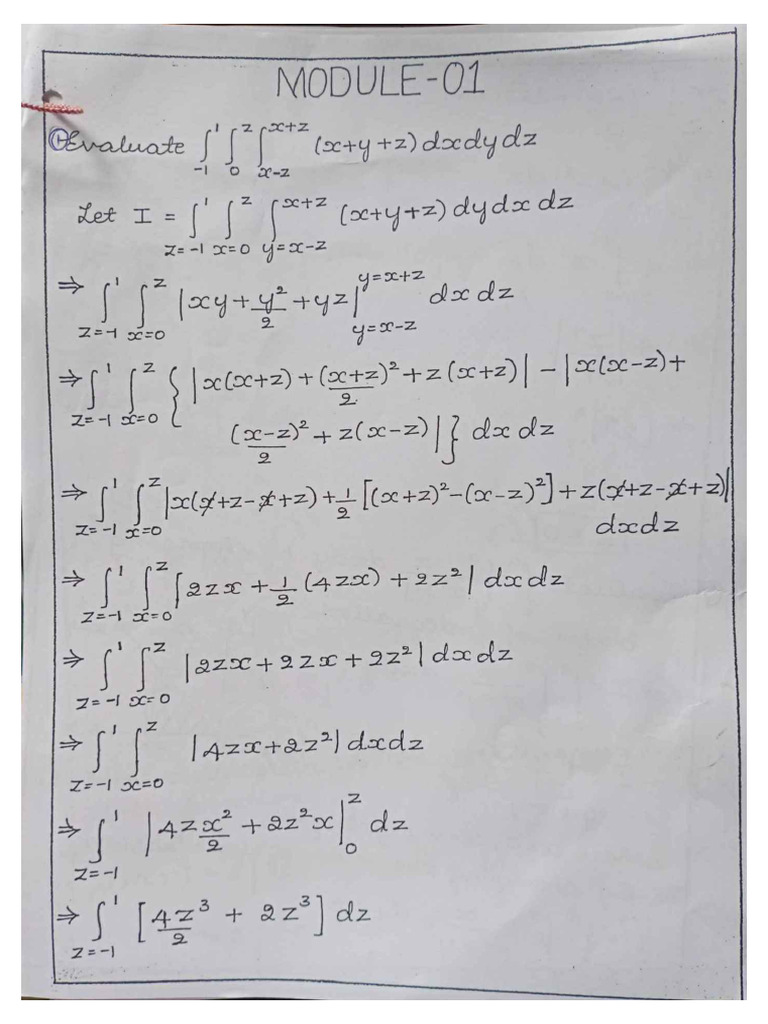 MODULE-01
① Evaluate ∫_{-1}^{1} ∫_{0}^{z} ∫_{x-z}^{x+z} (x+y+z) dxdydz
Let I = ∫_{z=-1}^{1} ∫_{x=0}^{z} ∫_{y=x-z}^{x+z} (x+y+z) dydxdz
⇒ ∫_{z=-1}^{1} ∫_{x=0}^{z} |xy + y²/2 + yz|_{y=x-z}^{y=x+z} dxdz
⇒ ∫_{z=-1}^{1} ∫_{x=0}^{z} { |x(x+z) + (x+z)²/2 + z(x+z)| - |x(x-z) +
(x-z)²/2 + z(x-z)| } dxdz
⇒ ∫_{z=-1}^{1} ∫_{x=0}^{z} |x(x+z-x+z) + 1/2 [(x+z)² - (x-z)²] + z(x+z-x+z)|
dxdz
⇒ ∫_{z=-1}^{1} ∫_{x=0}^{z} |2zx + 1/2 (4zx) + 2z²| dxdz
⇒ ∫_{z=-1}^{1} ∫_{x=0}^{z} |2zx + 2zx + 2z²| dxdz
⇒ ∫_{z=-1}^{1} ∫_{x=0}^{z} |4zx + 2z²| dxdz
⇒ ∫_{z=-1}^{1} |4z x²/2 + 2z²x|_{0}^{z} dz
⇒ ∫_{z=-1}^{1} [4z³/2 + 2z³] dz